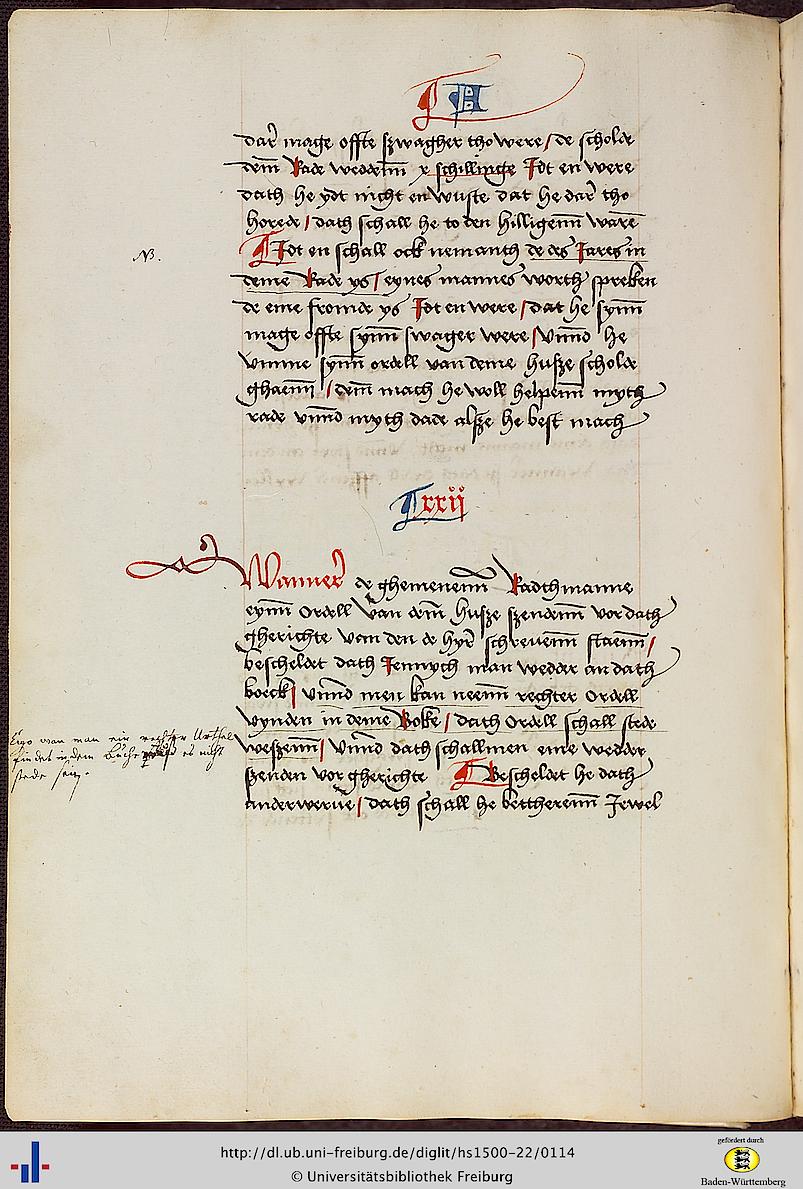 B
dar̃ mage offte szwagher tho were / de scholde
dem̄ Rade wedden̄ x schillinge Idt en were
dath he ydt nicht en wuste dat he dar̃ tho
horede / dath schall he to den hilligenn̄ warē
Idt en schall ock nemanth de des Jares in
NB.
deme Rade ys / eynes mannes worth spreken
de eme fromde ys Idt en were / dat he synn̄
mage offte synn̄ swager were / Vnnd he
vmme synn̄ ordell van deme husze scholde
ghaenn̄ / dem̄ mach he woll helpenn̄ myth
rade vnnd myth dade alsze he best mach
xxij
Wanner̃ de ghemenenn̄ Radthmanne
eynn̄ Ordell van dem̄ husze szendenn̄ vor dath
gherichte van den de hyr̃ schreuenn̄ staenn̄ /
bescheldet dath Jennych man wedder an dath
boeck / vnnd men kan neenn̄ rechter Ordell
vynden in deme Boke / dath Ordell schall stede
weszenn̄ / Vnnd dath schall men eme wedder
szenden vor gherichte Bescheldet he dath
anderwerue / dath schall he betherenn̄ Jewel
Ergo wan man ein rechter Urthel
findet in dem Buche es nicht
stede sein.
http://dl.ub.uni-freiburg.de/diglit/hs1500-22/0114
© Universitätsbibliothek Freiburg
gefördert durch
Baden-Württemberg